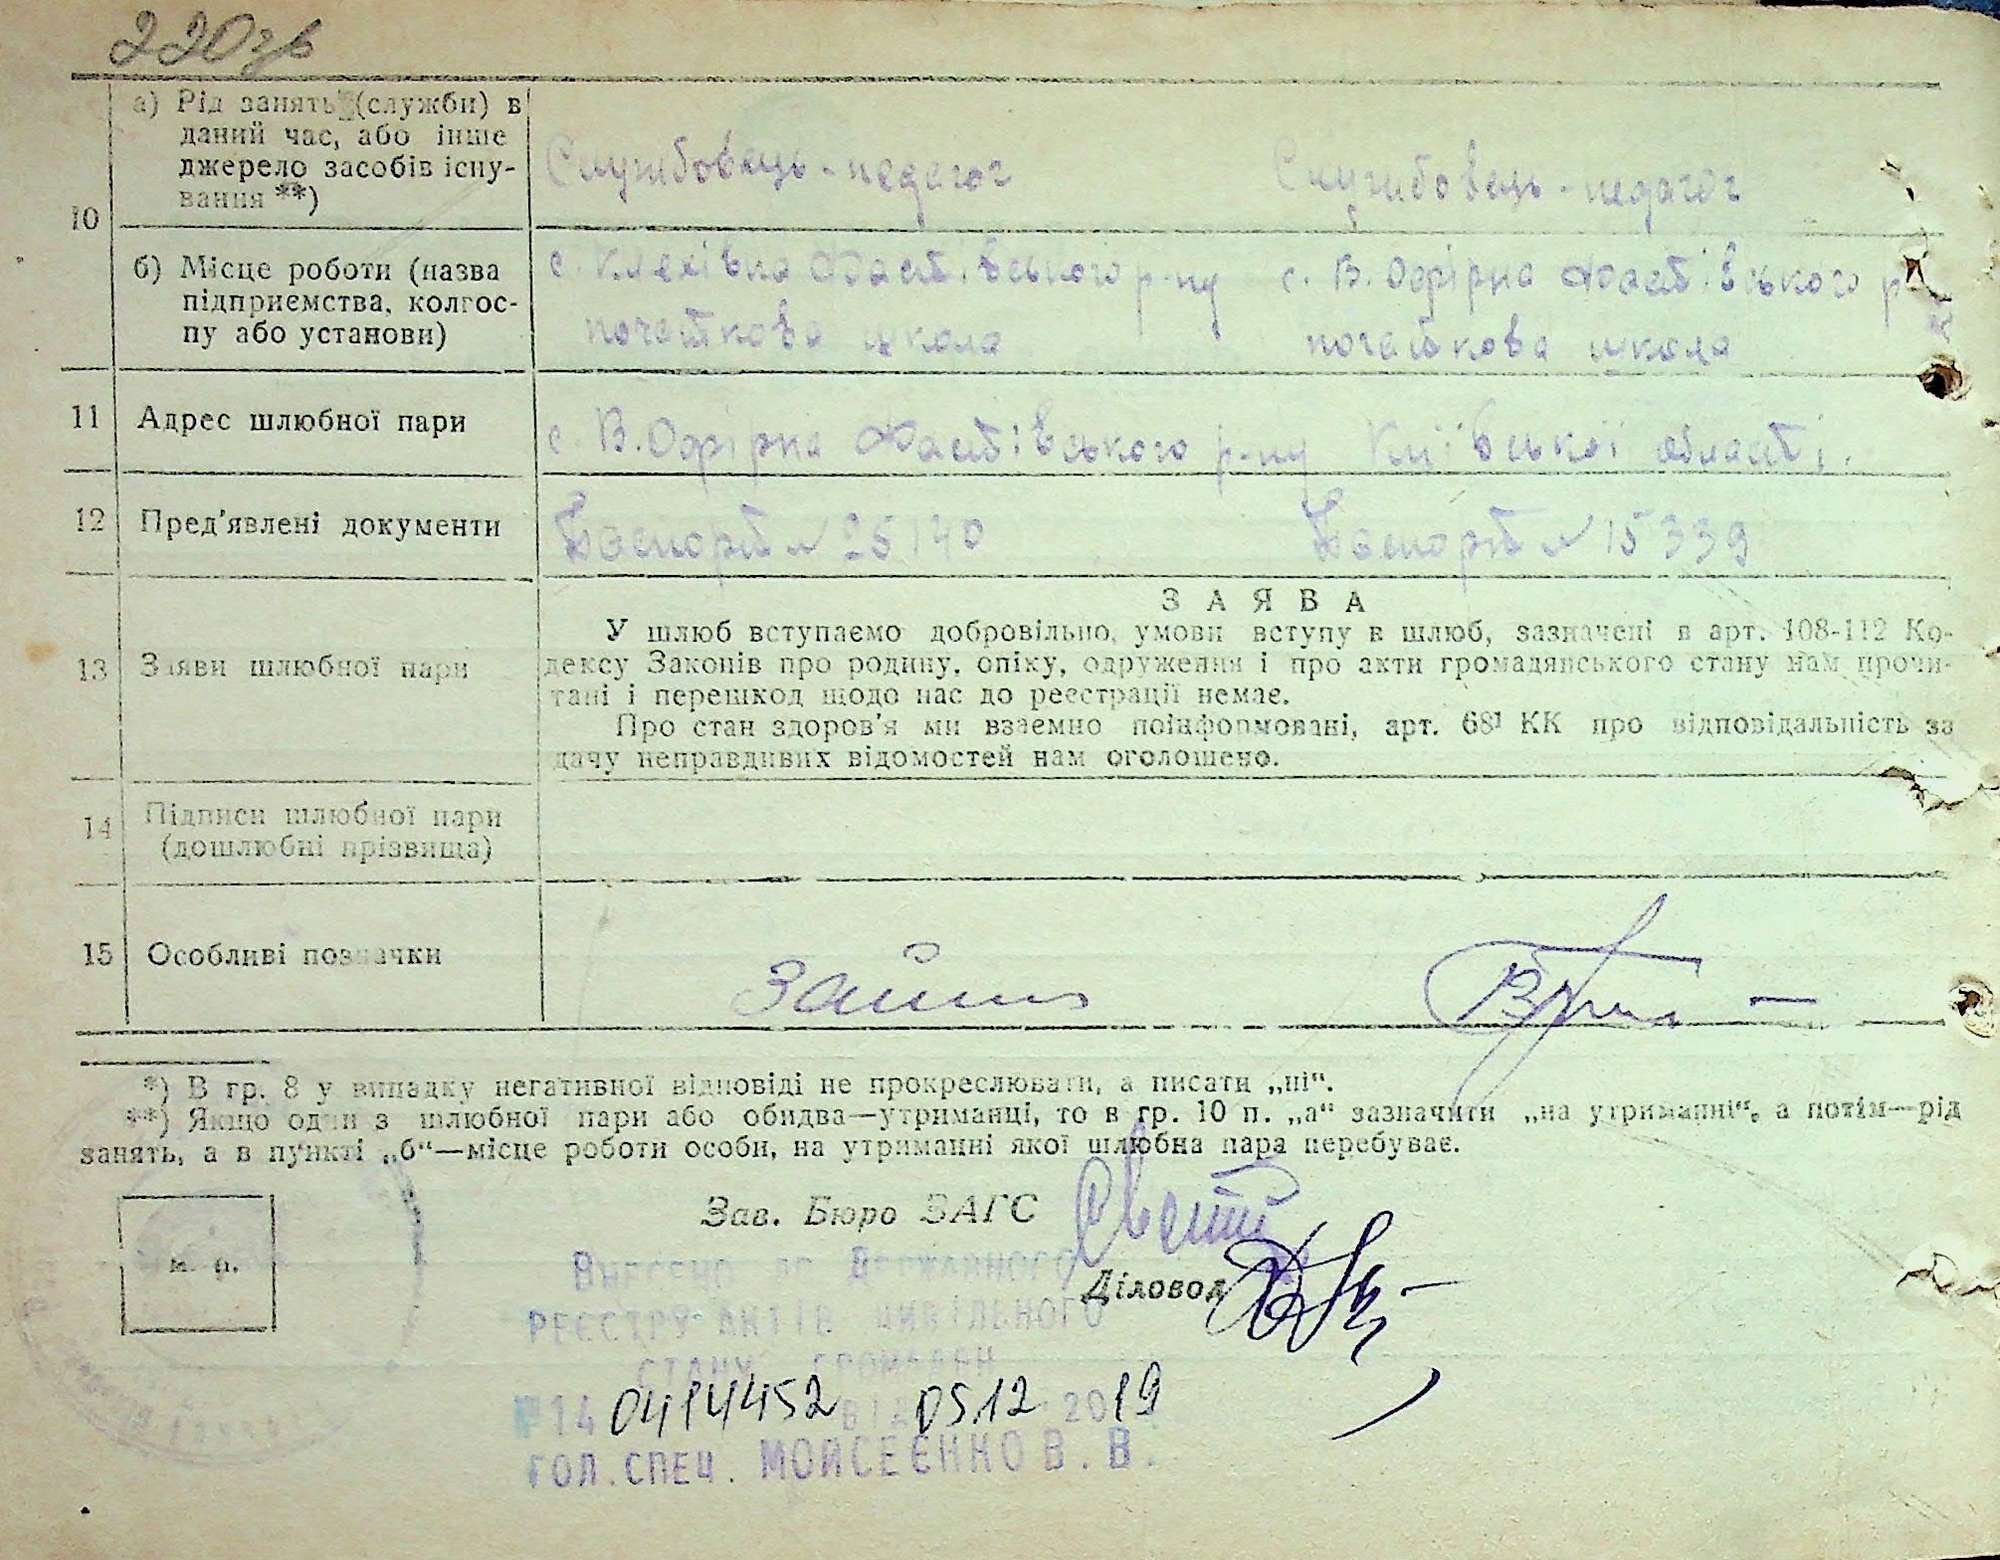 220зв
а) Рід занять (служби) в
даний час, або інше
джерело засобів існу-
вання **)
Службовець - педагог
Службовець - педагог
10
б) Місце роботи (назва
підприємства, колгос-
пу або установи)
с. Клехівка Фастівського р-ну
початкова школа
с. В. Офірна Фастівського р
початкова школа
11
Адрес шлюбної пари
с. В. Офірна Фастівського р-ну Київської області.
12
Пред'явлені документи
Паспорт № 25140
Паспорт № 15339
13
Заяви шлюбної пари
ЗАЯВА
У шлюб вступаємо добровільно, умови вступу в шлюб, зазначені в арт. 108-112 Ко-
дексу Законів про родину, опіку, одруження і про акти громадянського стану нам прочи-
тані і перешкод щодо нас до реєстрації немає.
Про стан здоров'я ми взаємно поінформовані, арт. 68¹ КК про відповідальність за
дачу неправдивих відомостей нам оголошено.
14
Підписи шлюбної пари
(дошлюбні прізвища)
15
Особливі позначки
*) В гр. 8 у випадку негативної відповіді не прокреслювати, а писати „ні“.
**) Якщо один з шлюбної пари або обидва—утриманці, то в гр. 10 п. „а“ зазначити „на утриманні“, а потім—рід
занять, а в пункті „б“—місце роботи особи, на утриманні якої шлюбна пара перебуває.
м. п.
Зав. Бюро ЗАГС
Діловод
Внесено до Державного
реєстру актів цивільного
стану громадян
№14 0414452 від 05.12 2019
гол. спец. Мойсеєнко В. В.